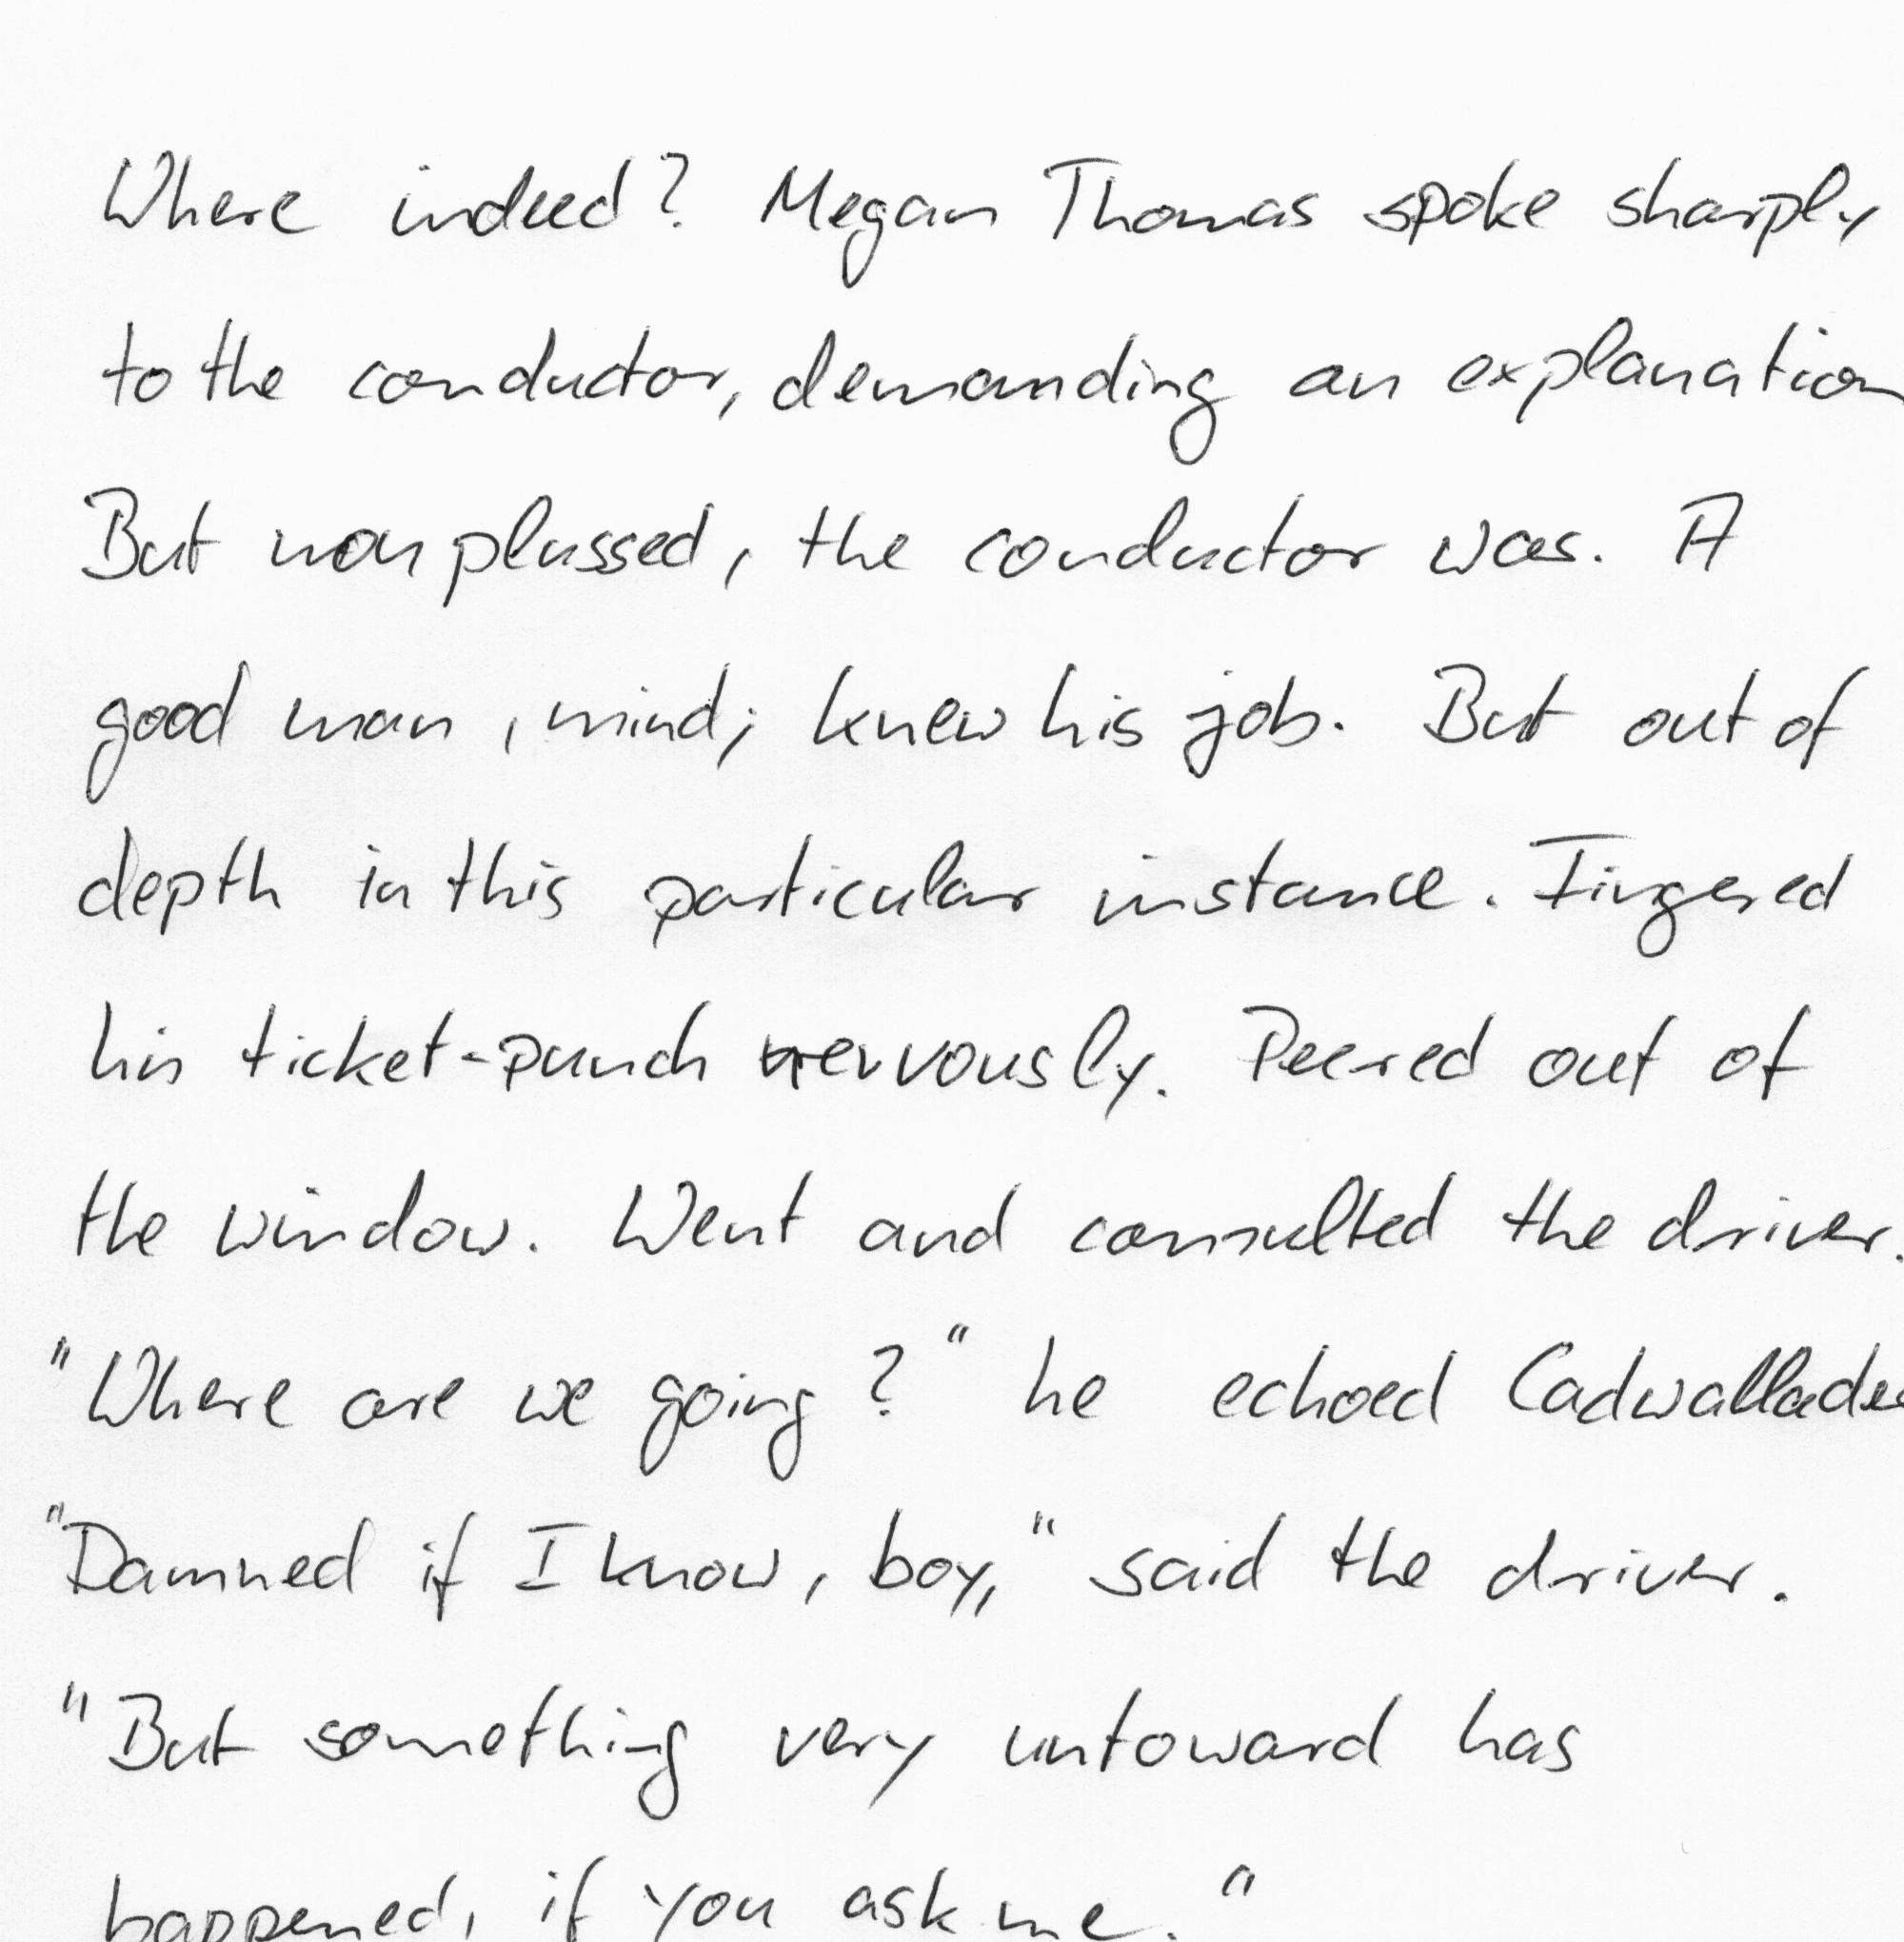 Where indeed? Megan Thomas spoke sharply
to the conductor, demanding an explanation
But nonplussed, the conductor was. A
good man, mind; knew his job. But out of
depth in this particular instance. Fingered
his ticket-punch nervously. Peered out of
the window. Went and consulted the driver.
"Where are we going?" he echoed Cadwallader
"Damned if I know, boy," said the driver.
"But something very untoward has
happened, if you ask me."